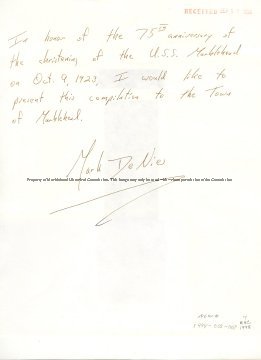 RECEIVED
In honor of the 75th anniversary of
the christening of the U.S.S. Marblehead
on Oct. 9, 1923, I would like to
present this compilation to the Town
of Marblehead.
Mark De
Property of Marblehead Historical Commission. This image may only be used with permission of the Commission